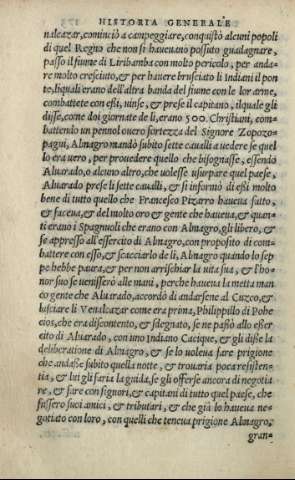 HISTORIA GENERALE
nalcazar, cominciò a campeggiare, conquistò alcuni popoli
di quel Regno che non si haueuano possuto guadagnare,
passò il fiume di Liribamba con molto pericolo, per anda-
re molto cresciuto, & per hauere bruscíato li Indiani il pon
te, liquali erano dell'altra banda del fiume con le lor arme,
combattete con essi, uinse, & prese il capitano, ilquale gli
disse, come doi giornate de li, erano 500. Christiani, com-
battendo un pennol ouero fortezza del Signore Zopozo-
pagui, Almagro mandò subito sette caualli a uedere se quel
lo era uero, per prouedere quello che bisognasse, essendo
Aluarado, o alcuno altro, che uolesse usurpare quel paese,
Aluarado prese li sette caualli, & si informò di essi molto
bene di tutto quello che Francesco Pizarro haueua fatto,
& faceua, & del molto oro & gente che haueua, & quan-
ti erano i Spagnuoli che erano con Almagro, gli liberò, &
se appressò all'essercito di Almagro, con proposito di com-
battere con esso, & scacciarlo de li, Almagro quando lo sep
pe hebbe paura, & per non arrischiar la uita sua, & l'ho-
nor suo se uenisserò alle mani, perche haueua la metta man
co gente che Aluarado, accordò di andarsene al Cuzco, &
lasciare li Venalcazar come era prima, Philippillo di Pohe
cios, che era discontento, & sdegnato, se ne passò allo esser
cito di Aluarado, con uno Indiano Cacique, & gli disse la
deliberatione di Almagro, & se lo uoleua fare prigione
che andasse subito quella notte, & trouaria poca resisten-
tia, & lui gli faria la guida, se gli offerse ancora di negotia
re, & fare con signori, & capitani di tutto quel paese, che
fussero suoi amici, & tributari, & che già lo haueua ne-
gotiato con loro, con quelli che teneua prigione Almagro,
gran-